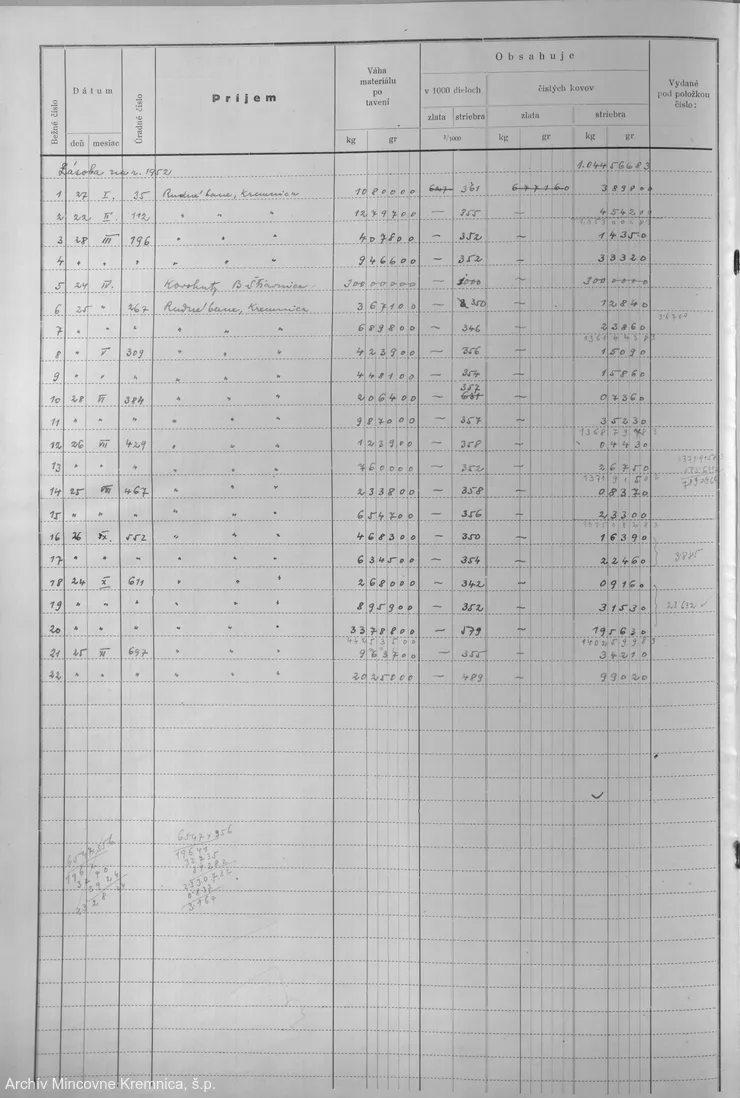 Obsahuje
Bežné číslo
Dátum
Úradné číslo
Príjem
Váha materiálu po tavení
v 1000 dieloch
čistých kovov
Vydané pod položkou číslo:
deň mesiac
zlata striebra
zlata
striebra
kg gr
1/1000
kg gr
kg gr
Zásoba na r. 1952 1.04456683
1 27 I. 35 Rudné bane, Kremnica 1080000 627 361 677160 389800
2 22 II. 112 " " " 1279700 — 355 — 454200
3 28 III 196 " " " 407800 — 352 — 14350
4 " " " " " 946600 — 352 — 33320
5 24 IV. B Štiavnica 300000000 — 1000 — 300000000
6 25 " 267 Rudné bane, Kremnica 367100 — 350 — 12840
7 " " " " " 689800 — 346 — 23860
8 " V 309 " " " 423900 — 356 — 15090
9 " " " " " 448100 — 354 — 15860
357
10 28 VI 384 " " " 206400 — 631 — 07360
11 " " " " " 987000 — 357 — 35230
12 26 VII 429 " " " 123900 — 358 — 04430
13 " " " " " 760000 — 352 — 26750
14 25 VIII 467 " " " 233800 — 358 — 08370
15 " " " " " 654700 — 356 — 23300
16 26 IX. 552 " " " 468300 — 350 — 16390
17 " " " " " 634500 — 354 — 22460
3885
18 24 X 611 " " " 268000 — 342 — 09160
19 " " " " " 895900 — 352 — 31530
23632
20 " " " " " 3378800 — 579 — 195630
21 25 XI 697 " " " 963700 — 355 — 34210
22 " " " " " 2025000 — 489 — 99020
Archív Mincovne Kremnica, š.p.